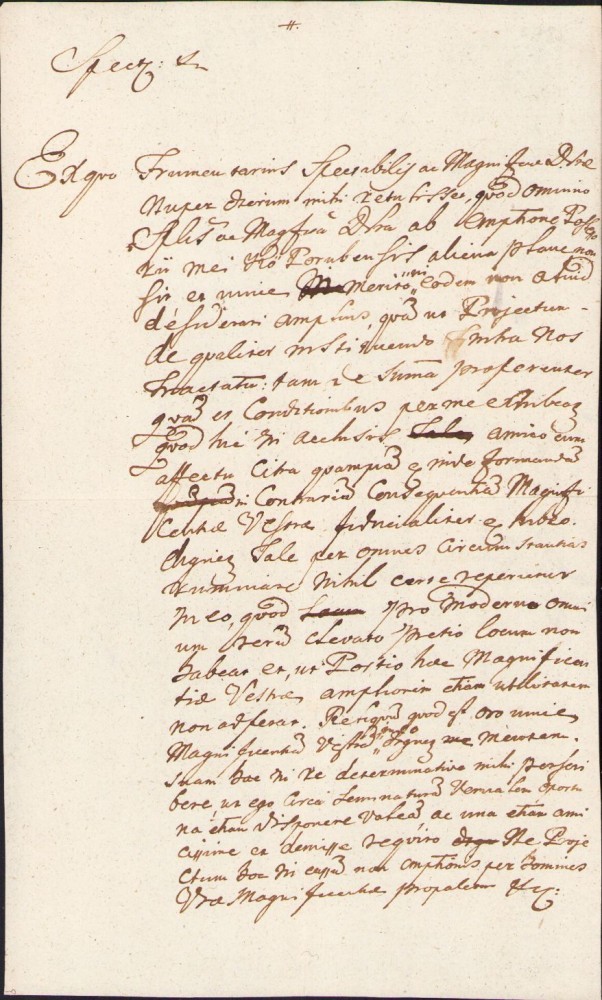 #.
Spect: &
Ex quo Frumentarius Spectabilis ac Magnificae D. Vrae
Nuper diserum mihi retulisset, quod omnino
Splis ac Magfica D Vra ab emptione Posses
rii mei Porubensis aliena plane non
sit et unice merito eodem non aliud
desiderari amplius, quam ut Projectum
de qualiter instituendo intra nos
tractatu: tam de summa proferenter
quam et Conditionibus per me exhibeatur
quod hic in acclusis amico cum
affectu Citra quampiam inde formandam
Contrariam Consequentiam Magnifi
centiae Vestrae fiducialiter exhibeo.
dignetur Tale per omnes Circumstantias
ruminare Nihil certe reperietur
in eo, quod pro moderno omni
um rerum elevato pretio locum non
habeat et, ut Portio haec Magnificen
tiae Vestrae ampliorem etiam utilitatem
non adferat. Reliquum quod est oro unice
Magnificentiam Vestram dignetur mentem
suam hac in re determinative mihi perscri
bere, ut ego circa seminaturam vernalem oportu
na etiam disponere valeam ac una etiam ami
cissime et demisse requiro Ne Proje
ctum hoc in casum non emptionis per homines
Vrae Magnificentiae propaletur &c: